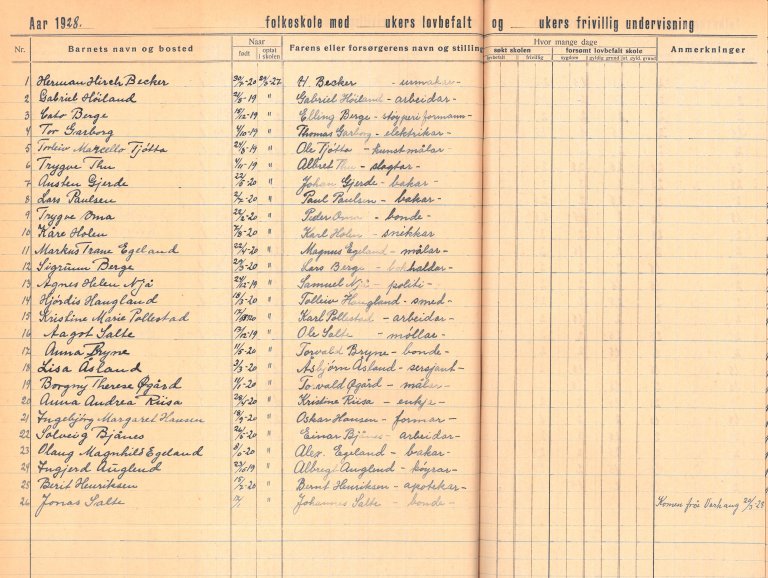 Aar 1928. folkeskole med ukers lovbefalt og ukers frivillig undervisning
Nr. Barnets navn og bosted Naar Farens eller forsørgerens navn og stilling Hvor mange dage Anmerkninger
født optat i skolen søkt skolen forsømt lovbefalt skole
lovbefalt frivillig sygdom gyldig grund int. gyld. grund
1 Herman Hirch Becker H. Becker - urmakar
2 Gabriel Höiland 19 " Gabriel Höiland - arbeidar -
3 Cato Berge 19 " Elling Berge - støyperi formann -
4 Tor Garborg 19 " Thomas Garborg - elektrikar -
5 Torleiv Marcello Tjötta 19 " Ole Tjötta - kunstmålar -
6 Trygve Thu 19 " Albret Thu - slagtar -
7 Austen Gjerde 20 " Johan Gjerde - bakar -
8 Lars Paulsen 20 " Paul Paulsen - bakar -
9 Trygve Oma 20 " Peder Oma - bonde -
10 Kåre Holen 20 " Karl Holen - snikkar
11 Markus Trane Egeland 20 " Magnus Egeland - målar -
12 Sigrunn Berge 20 " Lars Berge -
13 Agnes Helen Njå 19 " Samuel Njå - politi -
14 Hjördis Haugland 20 " Tolleiv Haugland - smed -
15 Kristine Marie Pollestad 20 " Karl Pollestad - arbeidar -
16 Aagot Salte 19 " Ole Salte - möllar -
17 Anna Bryne 20 " Torvald Bryne - bonde -
18 Lisa Åsland 20 " Åsbjörn Åsland - sersjant -
19 Borgny Therese Øgård 20 " Torvald Øgård - målar -
20 Anna Andrea Riisa 20 " Kristine Riisa - enkje -
21 Ingebjörg Margaret Hansen 20 " Oskar Hansen - formar -
22 Solveig Bjånes 20 " Einar Bjånes - arbeidar -
23 Olaug Magnhild Egeland 20 " Alex. Egeland - bakar -
24 Ingjerd Auglend 19 " Auglend - köyrar -
25 Berit Henriksen 20 " Bernt Henriksen - apotekar -
26 Jonas Salte " Johannes Salte - bonde - Komen frå Varhaug